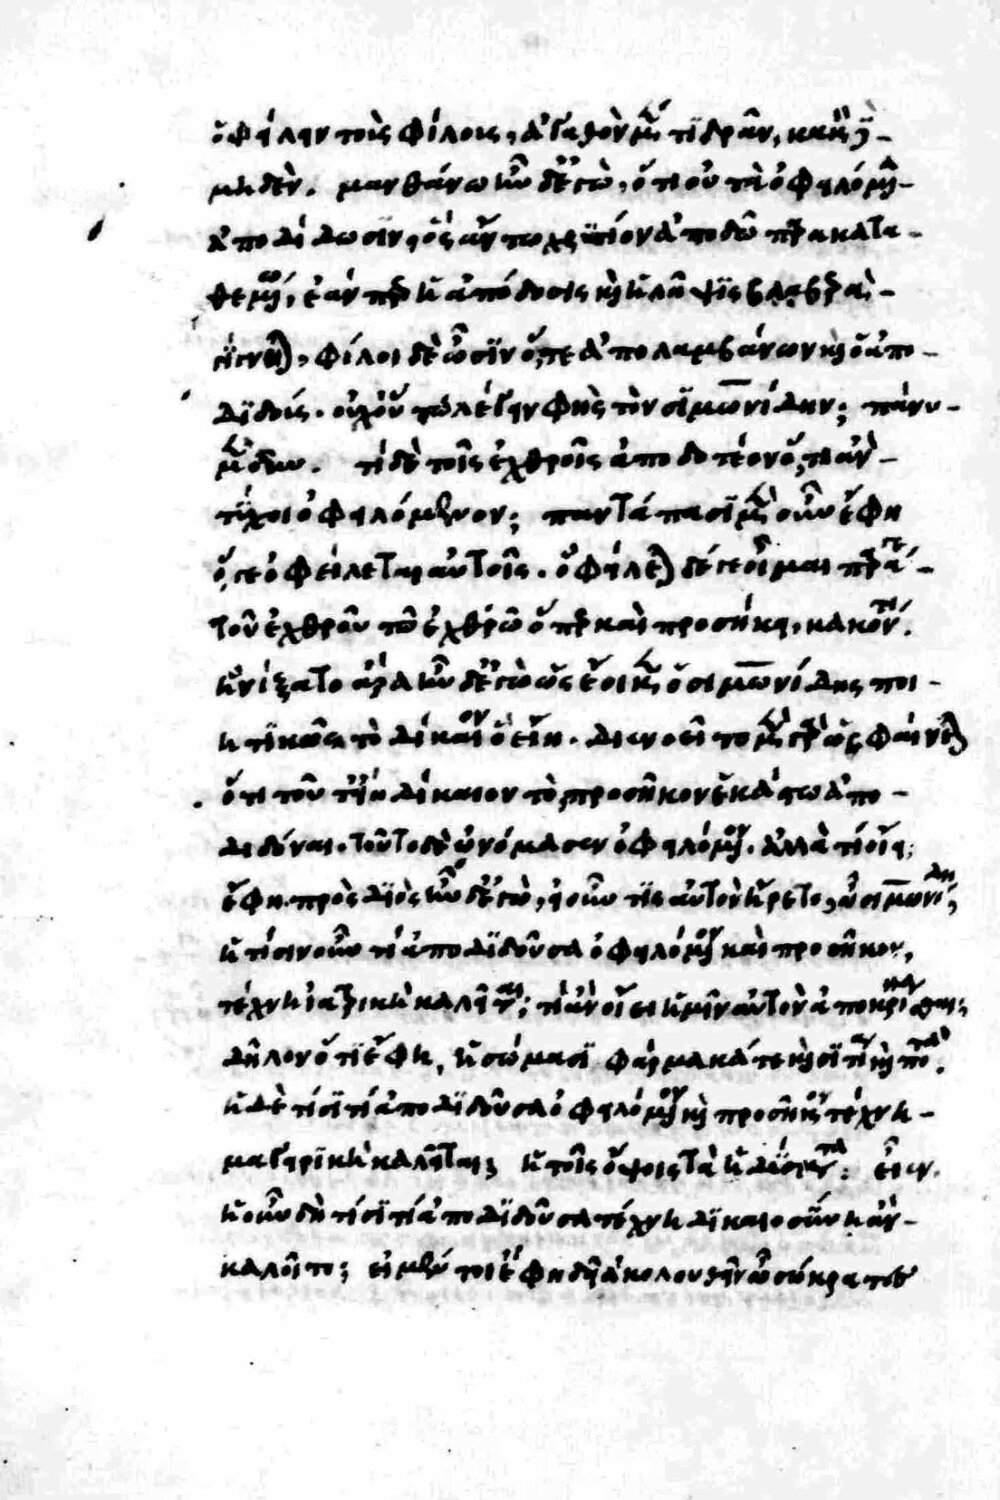 ὀφείλειν τοὺς φίλους, ἀγαθὸν μέν τι δρᾶν, κακὸν δὲ
μηδέν. μανθάνω ἦν δ' ἐγὼ, ὅτι οὐ τὰ ὀφειλόμενα
ἀποδίδωσιν, ὃς ἄν τῳ χρυσίον ἀποδῷ παρακατα-
θεμένῳ, ἐάν περ ἡ ἀπόδοσις καὶ ἡ λῆψις βλαβερὰ
γίγνηται, φίλοι δὲ ὦσιν ὅ,τε ἀπολαμβάνων καὶ ὁ ἀπο-
διδούς. οὐχ οὕτω λέγειν φῂς τὸν σιμωνίδην; πάνυ
μὲν οὖν. τί δὲ τοῖς ἐχθροῖς ἀποδοτέον ὅ,τι ἂν
τύχοι ὀφειλόμενον; παντάπασι μὲν οὖν ἔφη
ὅ,γε ὀφείλεται αὐτοῖς. ὀφείλεται δέ γε οἶμαι παρά γε
τοῦ ἐχθροῦ τῷ ἐχθρῷ ὅπερ καὶ προσήκει, κακόν τι.
ἠνίξατο ἄρα ἦν δ' ἐγὼ ὡς ἔοικεν ὁ σιμωνίδης ποι-
ητικῶς τὸ δίκαιον ὃ εἴη. διενοεῖτο μὲν γὰρ ὡς φαίνεται
ὅτι τοῦτ' εἴη δίκαιον τὸ προσῆκον ἑκάστῳ ἀπο-
διδόναι. τοῦτο δὲ ὠνόμασεν ὀφειλόμενον. ἀλλὰ τί οἴει;
ἔφη. πρὸς διὸς ἦν δ' ἐγὼ, εἰ οὖν τις αὐτὸν ἤρετο, ὦ σιμωνίδη,
ἡ τίσιν οὖν τί ἀποδιδοῦσα ὀφειλόμενον καὶ προσῆκον,
τέχνη ἰατρικὴ καλεῖται; τί ἂν οἴει ἡμῖν αὐτὸν ἀποκρίνασθαι;
δῆλον ὅτι ἔφη, ἡ σώμασι φάρμακά τε καὶ σιτία καὶ ποτά.
ἡ δὲ τίσι τί ἀποδιδοῦσα ὀφειλόμενον καὶ προσῆκον τέχνη
μαγειρικὴ καλεῖται; ἡ τοῖς ὄψοις τὰ ἡδύσματα. εἶεν.
ἡ οὖν δὴ τίσι τί ἀποδιδοῦσα τέχνη δικαιοσύνη ἂν
καλοῖτο; εἰ μέν τοι ἔφη δεῖ ἀκολουθεῖν ὦ σώκρατες